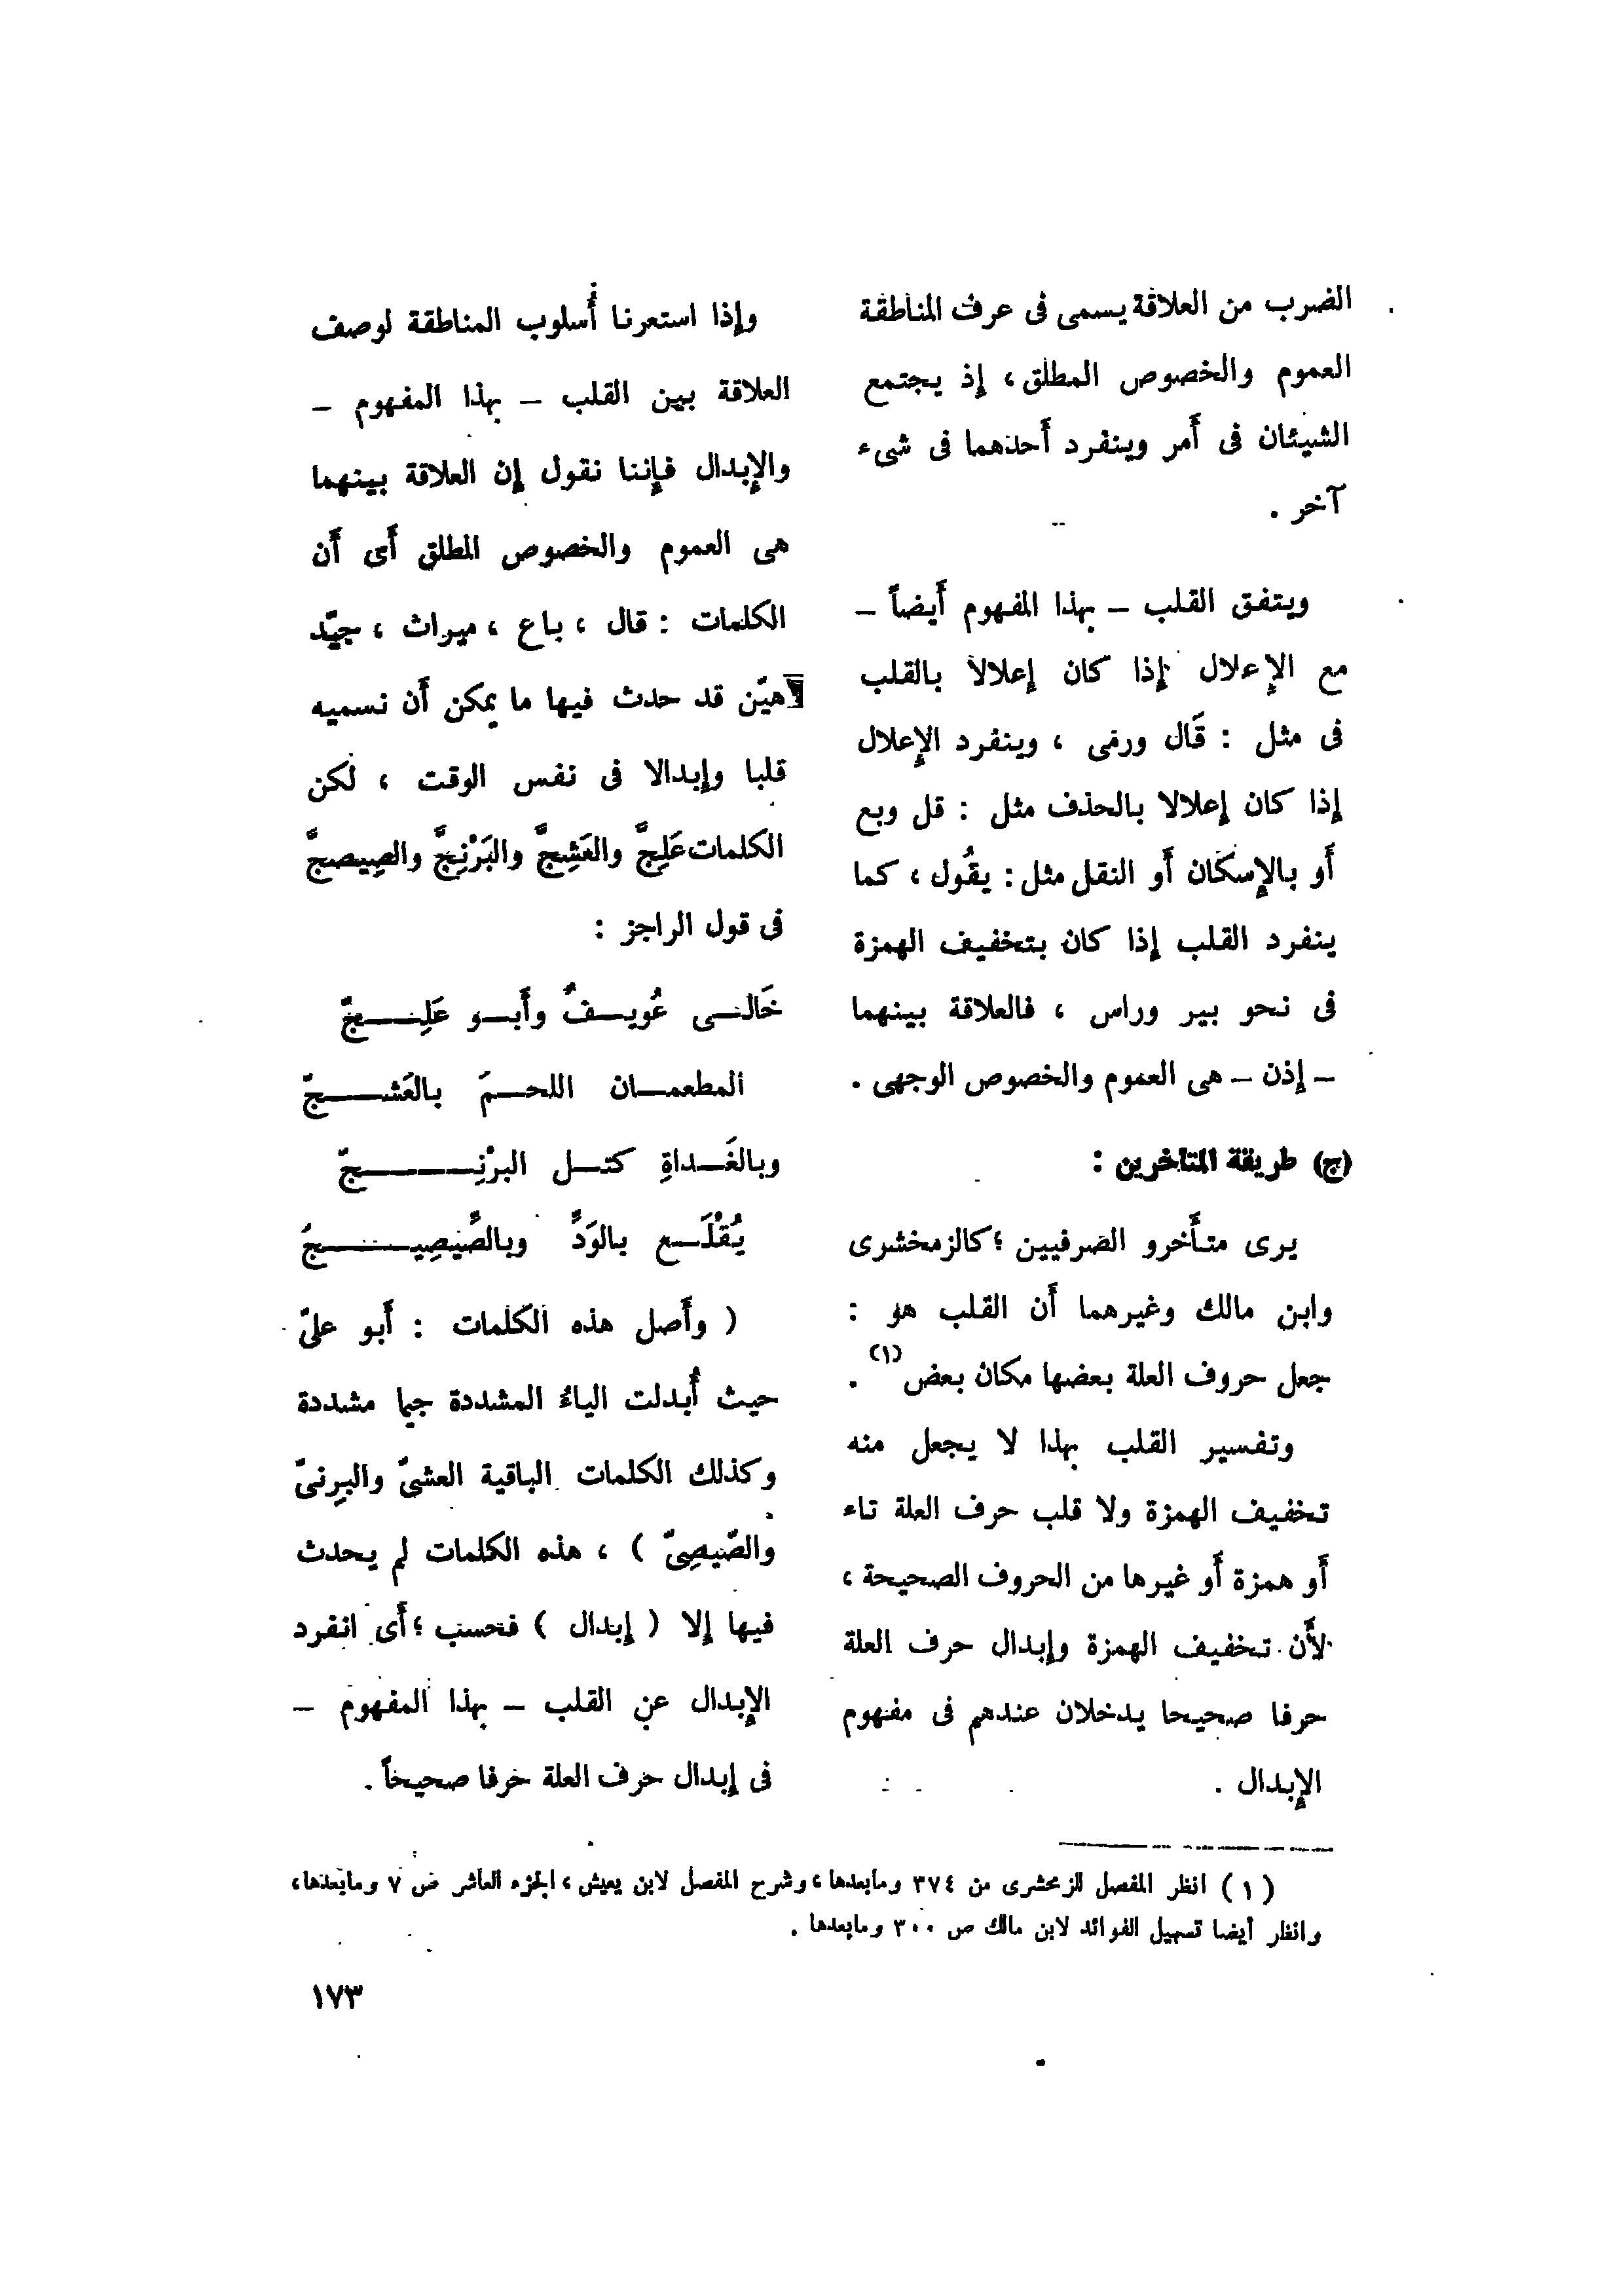 الضرب من العلاقة يسمى فى عرف المناطقة
العموم والخصوص المطلق، إذ يجتمع
الشيئان فى أمر وينفرد أحدهما فى شىء
آخر .
ويتفق القلب – بهذا المفهوم أيضاً –
مع الإعلال إذا كان إعلالا بالقلب
فى مثل : قَال ورمى ، وينفرد الإعلال
إذا كان إعلالا بالحذف مثل : قل وبع
أو بالإسكان أو النقل مثل : يقُول ، كما
ينفرد القلب إذا كان بتخفيف الهمزة
فى نحو بير وراس ، فالعلاقة بينهما
– إذن – هى العموم والخصوص الوجهى .
(ج) طريقة المتأخرين :
يرى متأخرو الصرفيين ؛ كالزمخشرى
وابن مالك وغيرهما أن القلب هو :
جعل حروف العلة بعضها مكان بعض (١) .
وتفسير القلب بهذا لا يجعل منه
تخفيف الهمزة ولا قلب حرف العلة تاء
أو همزة أو غيرها من الحروف الصحيحة ،
لأن تخفيف الهمزة وإبدال حرف العلة
حرفا صحيحا يدخلان عندهم فى مفهوم
الإبدال .
وإذا استعرنا أُسلوب المناطقة لوصف
العلاقة بين القلب – بهذا المفهوم –
والإبدال فإننا نقول إن العلاقة بينهما
هى العموم والخصوص المطلق أى أن
الكلمات : قال ، باع ، ميراث ، جيّد
هيّن قد حدث فيها ما يمكن أن نسميه
قلبا وإبدالا فى نفس الوقت ، لكن
الكلمات عَلِجَّ والعَشِجَّ والبَرْنِجَّ والصِيصجَّ
فى قول الراجز :
خَالـى عُويـفٌ وأَبـو عَلِـجّ
المطعمـان اللحـمَ بالعَشـجّ
وبالغَـداةِ كتـل البرْنِـجّ
يُقْلَـع بالوَدِّ وبالصِّيصِيـجّ
( وأَصل هذه الكلمات : أَبو علىّ
حيث أُبدلت الياءُ المشددة جيما مشددة
وكذلك الكلمات الباقية العشىّ والبرِنىّ
والصّيصِىّ ) ، هذه الكلمات لم يحدث
فيها إلا ( إبدال ) فحسب ؛ أى انفرد
الإبدال عن القلب – بهذا المفهوم –
فى إبدال حرف العلة حرفا صحيحاً .
( ١ ) انظر المفصل للزمخشرى من ٣٧٤ ومابعدها ، وشرح المفصل لابن يعيش ، الجزء العاشر ص ٧ ومابعدها ،
وانظر أيضا تسهيل الفوائد لابن مالك ص ٣٠٠ ومابعدها .
١٧٣